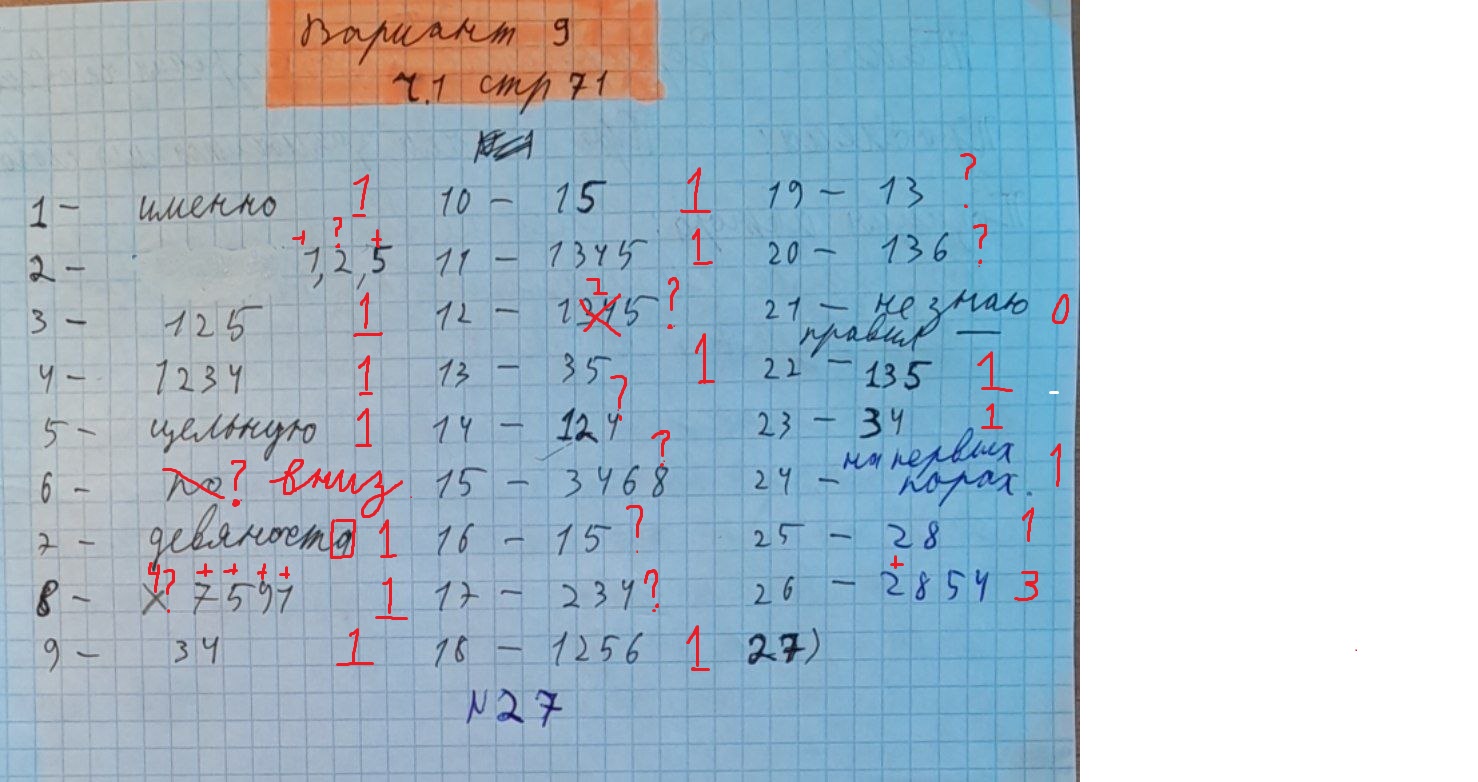 Вариант 9
ч.1 стр 71
1 - именно 1
2 - 1,2,5 + ? +
3 - 125 1
4 - 1234 1
5 - цельную 1
6 - по? вниз
7 - девяноста 1
8 - х 4? 7591 + + + + 1
9 - 34 1
10 - 15 1
11 - 1345 1
12 - 1345 ?
13 - 35 1
14 - 124 ?
15 - 3468 ?
16 - 15 ?
17 - 234 ?
18 - 1256 1
19 - 13 ?
20 - 136 ?
21 - не знаю 0
правил
22 - 135 1
23 - 34 1
24 - на первых 1
порах.
25 - 28 1
26 - 2854 + 3
27)
№27